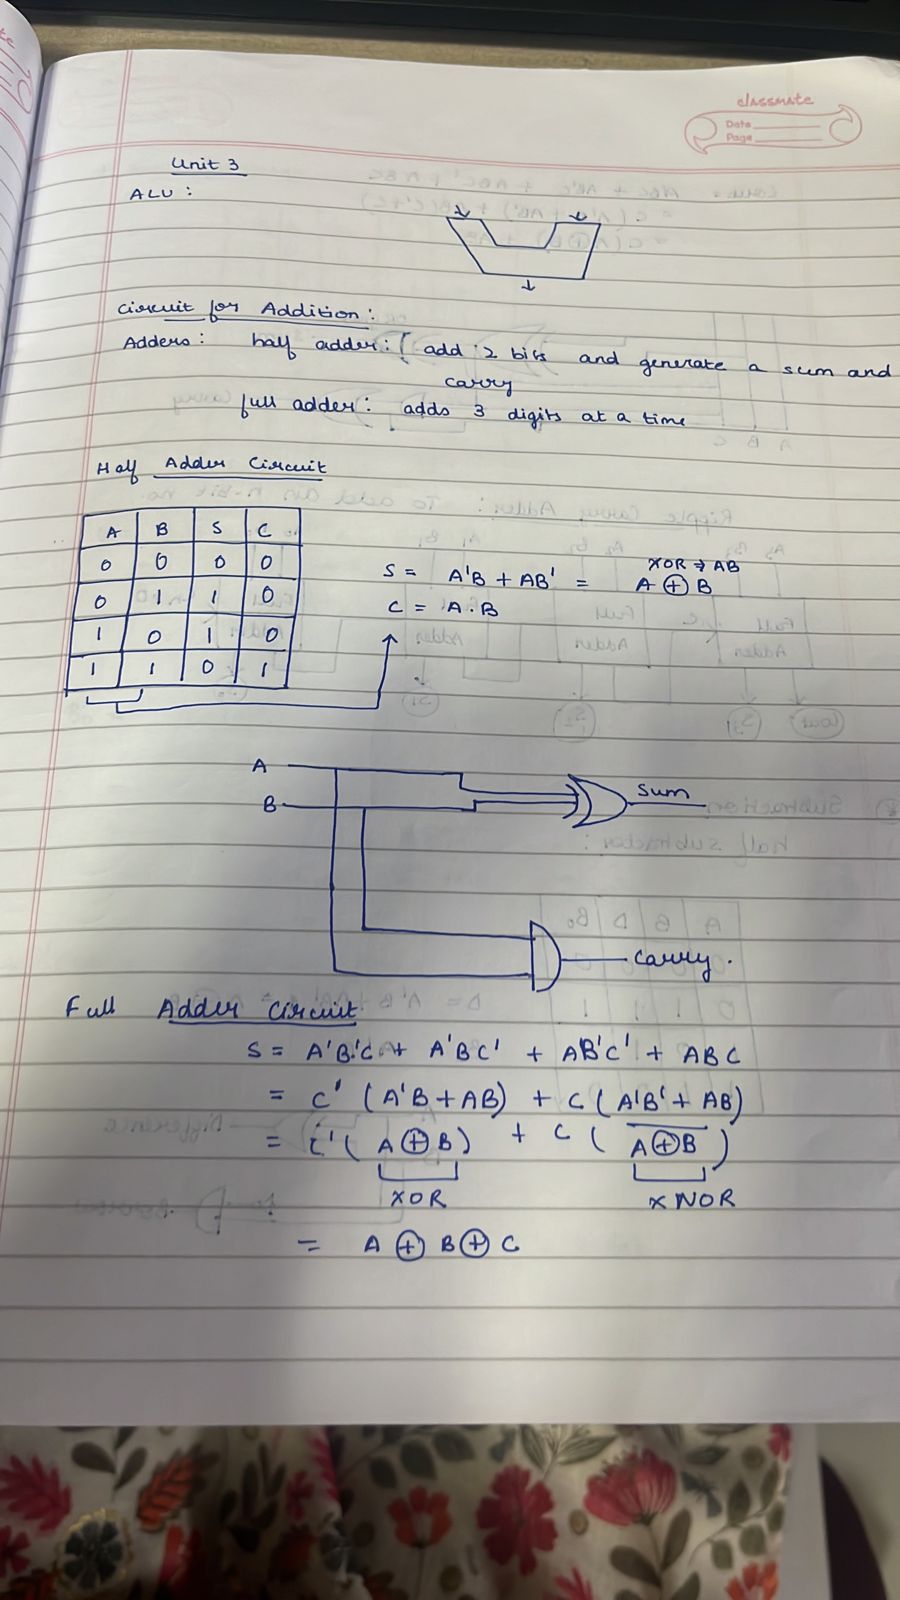 classmate
Date
Page
Unit 3
ALU :
Circuit for Addition :
Adders : half adder : [ add 2 bits and generate a sum and
carry
full adder : adds 3 digits at a time
Half Adder Circuit
A B S C
0 0 0 0
0 1 1 0
1 0 1 0
1 1 0 1
XOR → AB
S = A'B + AB' = A ⊕ B
C = A . B
A
B
sum
carry .
Full Adder Circuit
S = A'B'C + A'BC' + AB'C' + ABC
= C' (A'B + AB) + C (A'B' + AB)
= C' ( A ⊕ B ) + C ( \overline{A ⊕ B} )
XOR XNOR
= A ⊕ B ⊕ C